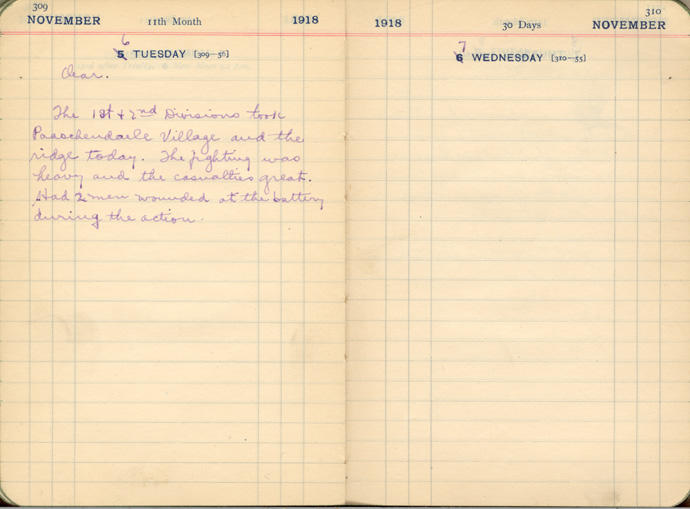 309
NOVEMBER 11th Month 1918
6
5 TUESDAY [309—56]
Clear.
The 1st & 2nd Divisions took
Paaschendaele Village and the
ridge today. The fighting was
heavy and the casualties great.
Had 2 men wounded at the battery
during the action.
310
1918 30 Days NOVEMBER
7
6 WEDNESDAY [310—55]